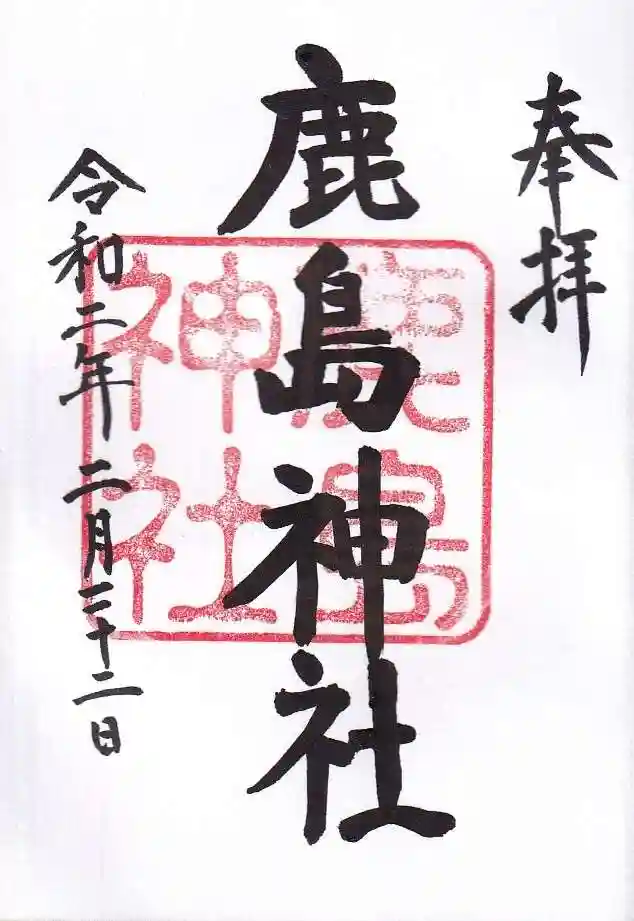 奉拝
鹿島神社
令和二年二月二十二日
鹿島
神社